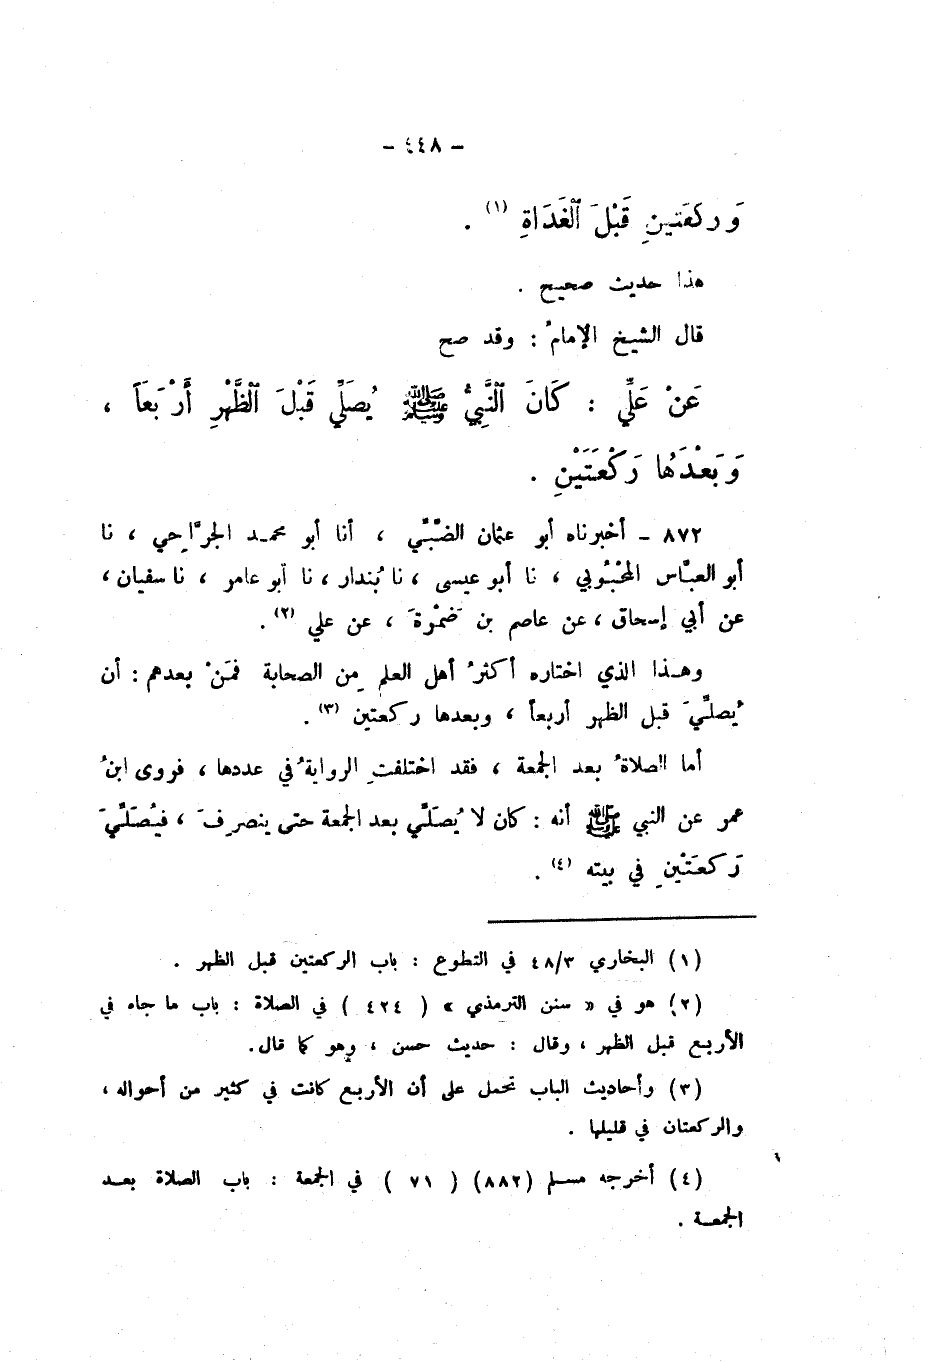 - ٤٤٨ -
وَركعَتينِ قَبْلَ ٱلغَدَاةِ (١) .
هذا حديث صحيح .
قال الشيخ الإمامُ : وقد صح
عَنْ عَلِيٍّ : كَانَ ٱلنَّبِيُّ ﷺ يُصَلِّي قَبْلَ ٱلظُّهْرِ أَرْبَعَاً ،
وَبَعْدَهُا رَكْعَتَيْنِ .
٨٧٢ - أخبرناه أبو عثمان الضّبّي ، أنا أبو محمد الجرَّاحي ، نا
أبو العبّاس المحْبُوبي ، نا أبو عيسى ، نا بُندار ، نا أبو عامر ، نا سفيان ،
عن أبي إسحاق ، عن عاصم بن ضَمْرةَ ، عن علي (٢) .
وهذا الذي اختاره أكثرُ أهل العلم مِن الصحابة فمَنْ بعدهم : أن
يُصلِّيَ قبل الظهر أربعاً ، وبعدها ركعتين (٣) .
أما الصلاةُ بعد الجمعة ، فقد اختلفتِ الروايةُ في عددها ، فروى ابنُ
عمر عن النبي ﷺ أنه : كان لا يُصَلّي بعد الجمعة حتى ينصرِفَ ، فيُصَلِّيَ
رَكعَتْينِ في بيته (٤) .
(١) البخاري ٤٨/٣ في التطوع : باب الركعتين قبل الظهر .
(٢) هو في « سنن الترمذي » ( ٤٢٤ ) في الصلاة : باب ما جاء في
الأربع قبل الظهر ، وقال : حديث حسن ، وهو كما قال.
(٣) وأحاديث الباب تحمل على أن الأربع كانت في كثير من أحواله ،
والركعتان في قليلها .
(٤) أخرجه مسلم (٨٨٢) ( ٧١ ) في الجمعة : باب الصلاة بعد
الجمعة .